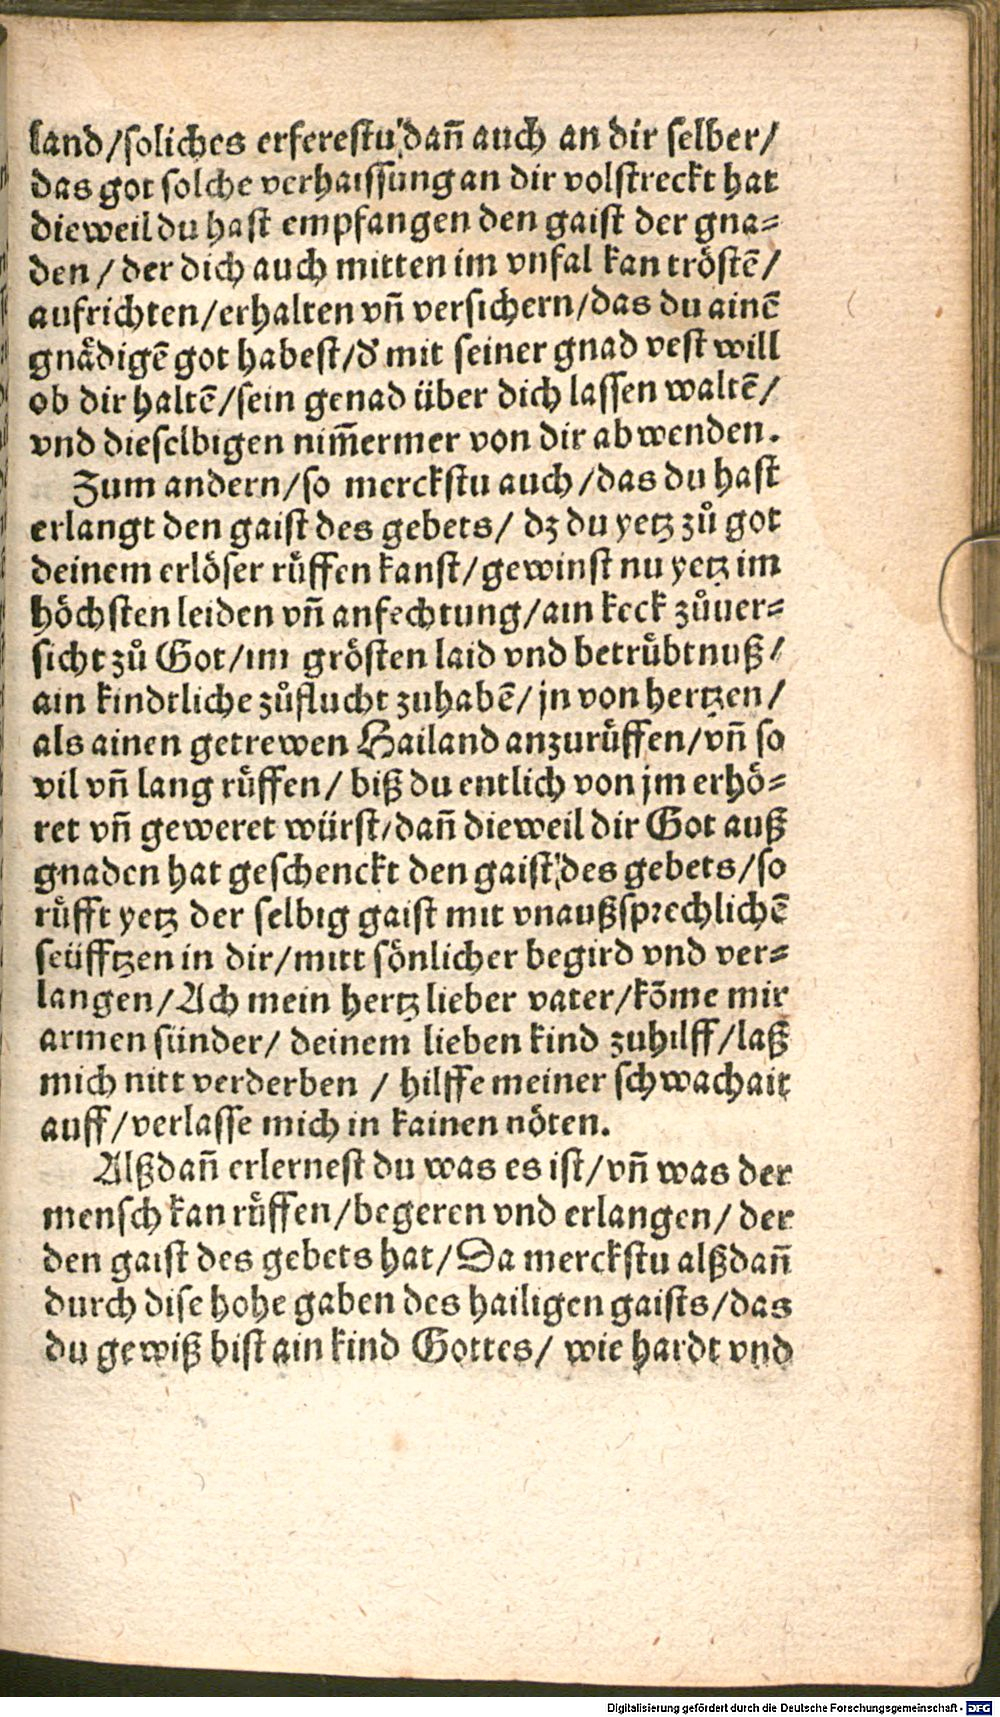 land/soliches erferestu dañ auch an dir selber/
das got solche verhaissung an dir volstreckt hat
dieweil du hast empfangen den gaist der gna⸗
den / der dich auch mitten im vnfal kan tröstē/
aufrichten/erhalten vñ versichern/das du ainē
gnädigē got habest/d̓ mit seiner gnad vest will
ob dir haltē/sein genad über dich lassen waltē/
vnd dieselbigen nim̄ermer von dir abwenden.
Zum andern/so merckstu auch/das du hast
erlangt den gaist des gebets/ dz du yetz zů got
deinem erlöser růffen kanst/gewinst nu yetz im
höchsten leiden vñ anfechtung/ain keck zůuer⸗
sicht zů Got/im grösten laid vnd betrůbtnuß/
ain kindtliche zůflucht zuhabē/jn von hertzen/
als ainen getrewen Hailand anzurůffen/vñ so
vil vñ lang růffen/ biß du entlich von jm erhö⸗
ret vñ geweret würst/dañ dieweil dir Got auß
gnaden hat geschenckt den gaist des gebets/so
růfft yetz der selbig gaist mit vnaußsprechlichē
seüfftzen in dir/mitt sönlicher begird vnd ver⸗
langen/Ach mein hertz lieber vater/kōme mir
armen sünder/ deinem lieben kind zuhilff/laß
mich nitt verderben / hilffe meiner schwachait
auff/verlasse mich in kainen nöten.
Alßdañ erlernest du was es ist/vñ was der
mensch kan růffen/begeren vnd erlangen/ der
den gaist des gebets hat/Da merckstu alßdañ
durch dise hohe gaben des hailigen gaists/das
du gewiß bist ain kind Gottes/ wie hardt vnd
Digitalisierung gefördert durch die Deutsche Forschungsgemeinschaft - DFG